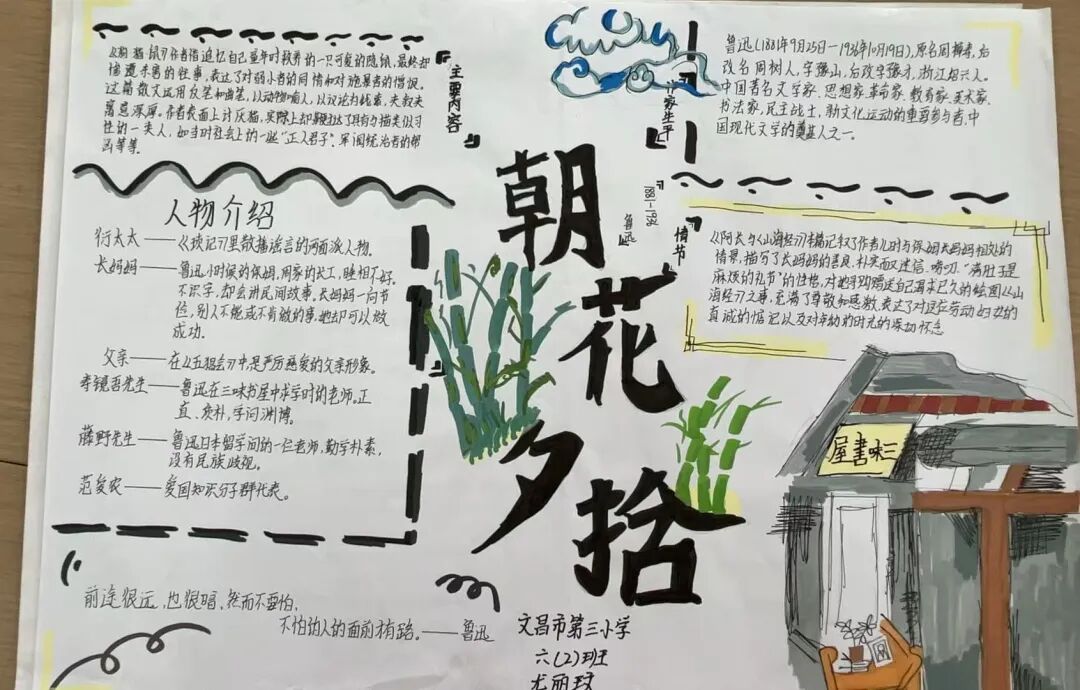 主要内容
《狗·猫·鼠》作者借追忆自己童年时救养的一只可爱的隐鼠,最终却
惨遭杀害的往事,表达了对弱小者的同情和对施暴者的憎恨。
这篇散文运用反笔和曲笔,以动物喻人,以议论为线索,夹叙夹
寓意深厚。作者表面上讨厌猫,实际上却表达了具有与猫类似习
性的一类人,如当时社会上的一些"正人君子"、军阀统治者的帮
凶等等。
作家生平
鲁迅(1881年9月25日—1936年10月19日),原名周樟寿,后
改名周树人,字豫山,后改字豫才,浙江绍兴人。
中国著名文学家、思想家、革命家、教育家、美术家、
书法家、民主战士,新文化运动的重要参与者,中
国现代文学的奠基人之一。
1881-1936
鲁迅
朝花夕拾
人物介绍
衍太太——《琐记》里散播谣言的两面派人物。
长妈妈——鲁迅小时候的保姆,周家的长工,睡相不好。
不识字,却会讲民间故事。长妈妈一向节
俭,别人不能或不肯做的事,她却可以做
成功。
父亲——在《五猖会》中是严厉慈爱的父亲形象。
寿镜吾先生——鲁迅在三味书屋中求学时的老师。正
直、质朴,学问渊博。
藤野先生——鲁迅日本留学间的一位老师,勤学朴素,
没有民族歧视。
范爱农——爱国知识分子群代表。
情节
《阿长与《山海经》》精记叙了作者儿时与保姆长妈妈相处的
情景,描写了长妈妈的善良、朴实而又迷信、唠叨、"满肚子是
麻烦的礼节"的性格,对她寻购赠送自己渴求已久的绘图《山
海经》之事,充满了尊敬和感激,表达了对这位劳动妇女的
真诚的惦记以及对年幼的时光的深切怀念
三味書屋
前途很远,也很暗,然而不要怕,
不怕的人的面前才有路。——鲁迅
文昌市第三小学
六(2)班
尤丽玟